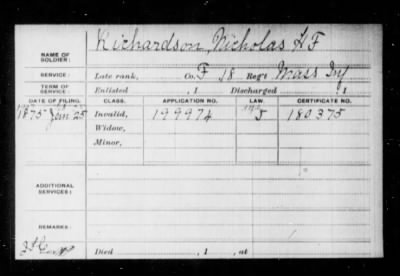 NAME OF SOLDIER: Richardson, Nicholas H F
SERVICE: Late rank, Co. F 18 Reg't Mass Inf
TERM OF SERVICE: Enlisted , 1 Discharged , 1
DATE OF FILING. CLASS. APPLICATION NO. LAW. CERTIFICATE NO.
1875 Jan 25 Invalid, 199974 180375
Widow,
Minor,
ADDITIONAL SERVICES:
REMARKS:
Died , 1 , at